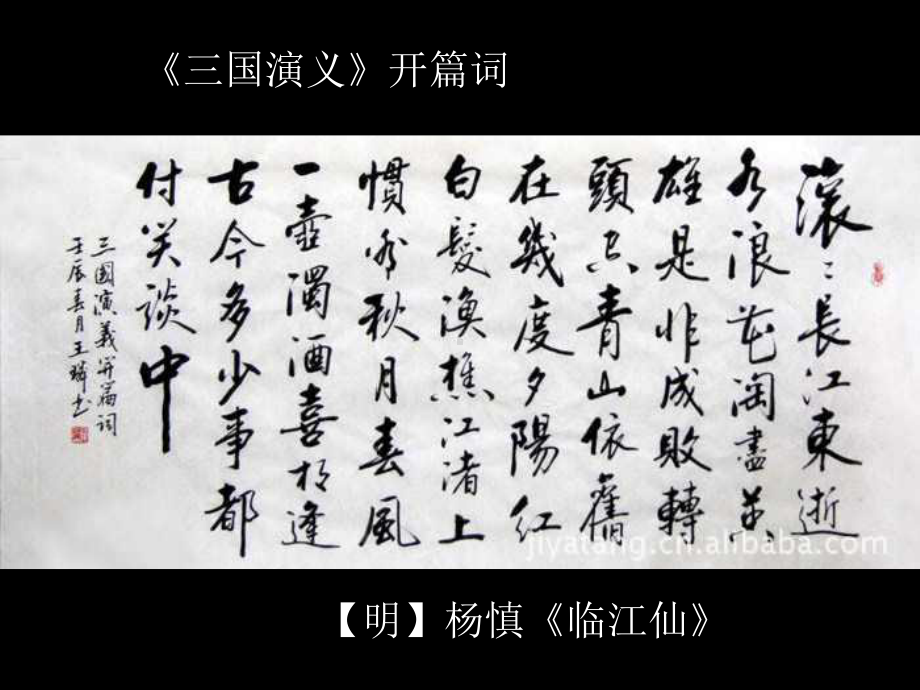 《三国演义》开篇词
滾〻長江東逝
水浪花淘盡英
雄是非成敗轉
頭空青山依舊
在幾度夕陽紅
白髮漁樵江渚上
慣看秋月春風
一壺濁酒喜相逢
古今多少事都
付笑談中
三國演義開篇詞
壬辰春月王书
jiyatang.cn.alibaba.com
【明】杨慎《临江仙》